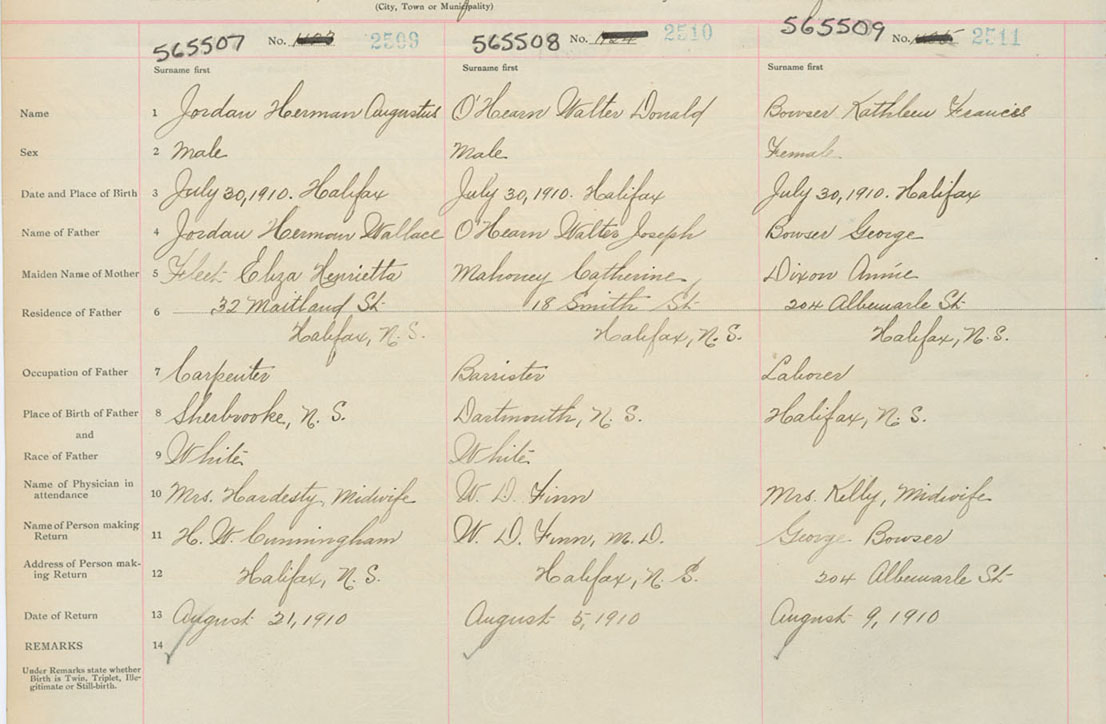 (City, Town or Municipality)
565507 No. 2509 565508 No. 2510 565509 No. 2511
Surname first Surname first Surname first
Name 1 Jordan Herman Augustus O'Hearn Walter Donald Bowser Kathleen Frances
Sex 2 Male Male Female
Date and Place of Birth 3 July 30, 1910. Halifax July 30, 1910. Halifax July 30, 1910. Halifax
Name of Father 4 Jordan Herman Wallace O'Hearn Walter Joseph Bowser George
Maiden Name of Mother 5 Fleet Eliza Henrietta Mahoney Catherine Dixon Annie
Residence of Father 6 32 Maitland St 18 Smith St 204 Albemarle St
Halifax, N.S. Halifax, N.S. Halifax, N.S.
Occupation of Father 7 Carpenter Barrister Laborer
Place of Birth of Father 8 Sherbrooke, N.S. Dartmouth, N.S. Halifax, N.S.
and
Race of Father 9 White White
Name of Physician in
attendance 10 Mrs. Hardesty, Midwife W. D. Finn Mrs. Kelly, Midwife
Name of Person making
Return 11 H. W. Cunningham W. D. Finn, M.D. George Bowser
Address of Person mak-
ing Return 12 Halifax, N.S. Halifax, N.S. 204 Albemarle St
Date of Return 13 August 21, 1910 August 5, 1910 August 9, 1910
REMARKS 14
Under Remarks state whether
Birth is Twin, Triplet, Ille-
gitimate or Still-birth.